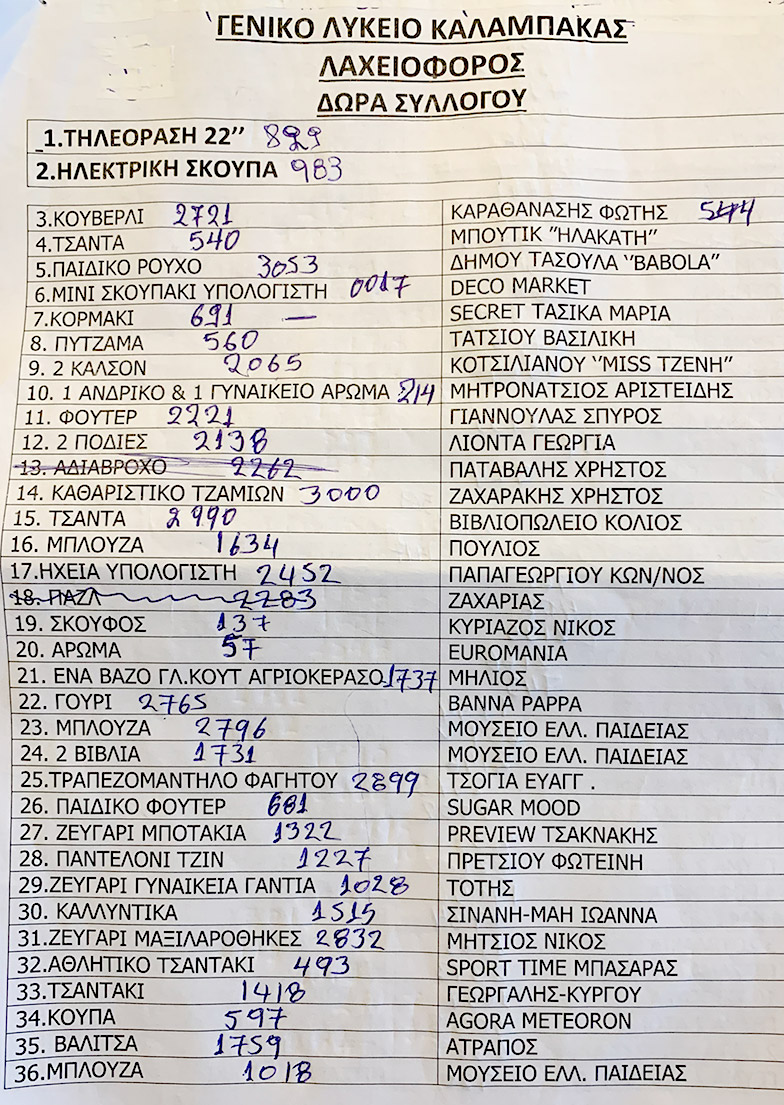 ΓΕΝΙΚΟ ΛΥΚΕΙΟ ΚΑΛΑΜΠΑΚΑΣ
ΛΑΧΕΙΟΦΟΡΟΣ
ΔΩΡΑ ΣΥΛΛΟΓΟΥ
1.ΤΗΛΕΟΡΑΣΗ 22’’ 829
2.ΗΛΕΚΤΡΙΚΗ ΣΚΟΥΠΑ 983
3.ΚΟΥΒΕΡΛΙ 2721 ΚΑΡΑΘΑΝΑΣΗΣ ΦΩΤΗΣ
4.ΤΣΑΝΤΑ 540 ΜΠΟΥΤΙΚ ‘’ΗΛΑΚΑΤΗ’’
5.ΠΑΙΔΙΚΟ ΡΟΥΧΟ 3053 ΔΗΜΟΥ ΤΑΣΟΥΛΑ ‘’BABOLA’’
6.ΜΙΝΙ ΣΚΟΥΠΑΚΙ ΥΠΟΛΟΓΙΣΤΗ 0017 DECO MARKET
7.ΚΟΡΜΑΚΙ 691 — SECRET ΤΑΣΙΚΑ ΜΑΡΙΑ
8. ΠΥΤΖΑΜΑ 560 ΤΑΤΣΙΟΥ ΒΑΣΙΛΙΚΗ
9. 2 ΚΑΛΣΟΝ 2065 ΚΟΤΣΙΛΙΑΝΟΥ ‘’MISS ΤΖΕΝΗ’’
10. 1 ΑΝΔΡΙΚΟ & 1 ΓΥΝΑΙΚΕΙΟ ΑΡΩΜΑ 214 ΜΗΤΡΟΝΑΤΣΙΟΣ ΑΡΙΣΤΕΙΔΗΣ
11. ΦΟΥΤΕΡ 2221 ΓΙΑΝΝΟΥΛΑΣ ΣΠΥΡΟΣ
12. 2 ΠΟΔΙΕΣ 2138 ΛΙΟΝΤΑ ΓΕΩΡΓΙΑ
13. ΑΔΙΑΒΡΟΧΟ 2262 ΠΑΤΑΒΑΛΗΣ ΧΡΗΣΤΟΣ
14. ΚΑΘΑΡΙΣΤΙΚΟ ΤΖΑΜΙΩΝ 3000 ΖΑΧΑΡΑΚΗΣ ΧΡΗΣΤΟΣ
15. ΤΣΑΝΤΑ 2990 ΒΙΒΛΙΟΠΩΛΕΙΟ ΚΟΛΙΟΣ
16. ΜΠΛΟΥΖΑ 1634 ΠΟΥΛΙΟΣ
17.ΗΧΕΙΑ ΥΠΟΛΟΓΙΣΤΗ 2452 ΠΑΠΑΓΕΩΡΓΙΟΥ ΚΩΝ/ΝΟΣ
18. ΠΑΖΛ 2283 ΖΑΧΑΡΙΑΣ
19. ΣΚΟΥΦΟΣ 137 ΚΥΡΙΑΖΟΣ ΝΙΚΟΣ
20. ΑΡΩΜΑ 57 EUROMANIA
21. ΕΝΑ ΒΑΖΟ ΓΛ.ΚΟΥΤ ΑΓΡΙΟΚΕΡΑΣΟ 1737 ΜΗΛΙΟΣ
22. ΓΟΥΡΙ 2765 ΒΑΝΝΑ ΡΑΡΡΑ
23. ΜΠΛΟΥΖΑ 2796 ΜΟΥΣΕΙΟ ΕΛΛ. ΠΑΙΔΕΙΑΣ
24. 2 ΒΙΒΛΙΑ 1731 ΜΟΥΣΕΙΟ ΕΛΛ. ΠΑΙΔΕΙΑΣ
25.ΤΡΑΠΕΖΟΜΑΝΤΗΛΟ ΦΑΓΗΤΟΥ 2899 ΤΣΟΓΙΑ ΕΥΑΓΓ .
26. ΠΑΙΔΙΚΟ ΦΟΥΤΕΡ 681 SUGAR MOOD
27. ΖΕΥΓΑΡΙ ΜΠΟΤΑΚΙΑ 1322 PREVIEW ΤΣΑΚΝΑΚΗΣ
28. ΠΑΝΤΕΛΟΝΙ ΤΖΙΝ 1227 ΠΡΕΤΣΙΟΥ ΦΩΤΕΙΝΗ
29.ΖΕΥΓΑΡΙ ΓΥΝΑΙΚΕΙΑ ΓΑΝΤΙΑ 1028 ΤΟΤΗΣ
30. ΚΑΛΛΥΝΤΙΚΑ 1515 ΣΙΝΑΝΗ-ΜΑΗ ΙΩΑΝΝΑ
31.ΖΕΥΓΑΡΙ ΜΑΞΙΛΑΡΟΘΗΚΕΣ 2832 ΜΗΤΣΙΟΣ ΝΙΚΟΣ
32.ΑΘΛΗΤΙΚΟ ΤΣΑΝΤΑΚΙ 493 SPORT TIME ΜΠΑΣΑΡΑΣ
33.ΤΣΑΝΤΑΚΙ 1418 ΓΕΩΡΓΑΛΗΣ-ΚΥΡΓΟΥ
34.ΚΟΥΠΑ 597 AGORA METEORON
35. ΒΑΛΙΤΣΑ 1759 ΑΤΡΑΠΟΣ
36.ΜΠΛΟΥΖΑ 1018 ΜΟΥΣΕΙΟ ΕΛΛ. ΠΑΙΔΕΙΑΣ